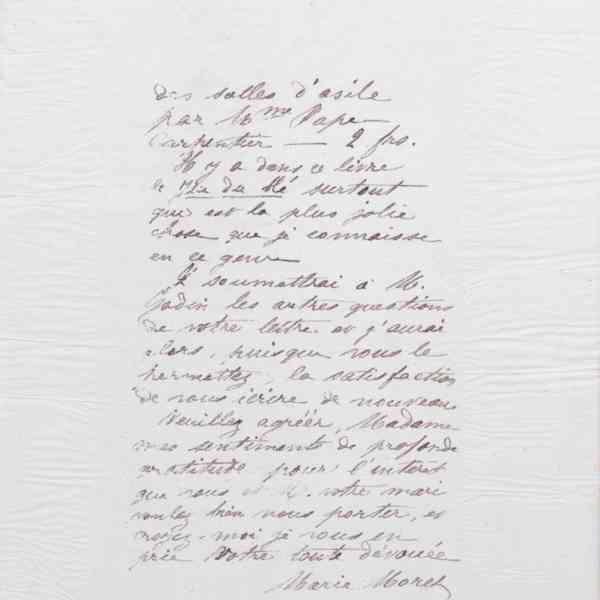 des salles d'asile
par Mme Pape
Carpentier — 2 frs.
Il y a dans ce livre
le Jeu du blé surtout
qui est la plus jolie
chose que je connaisse
en ce genre
Je soumettrai à M.
Godin les autres questions
de votre lettre et j'aurai
alors, puisque vous le
permettez, la satisfaction
de vous écrire de nouveau.
Veuillez agréer, Madame
mes sentiments de profonde
gratitude pour l'intérêt
que vous et M. votre mari
voulez bien nous porter, et
croyez-moi je vous en
prie Votre toute dévouée
Marie Moret